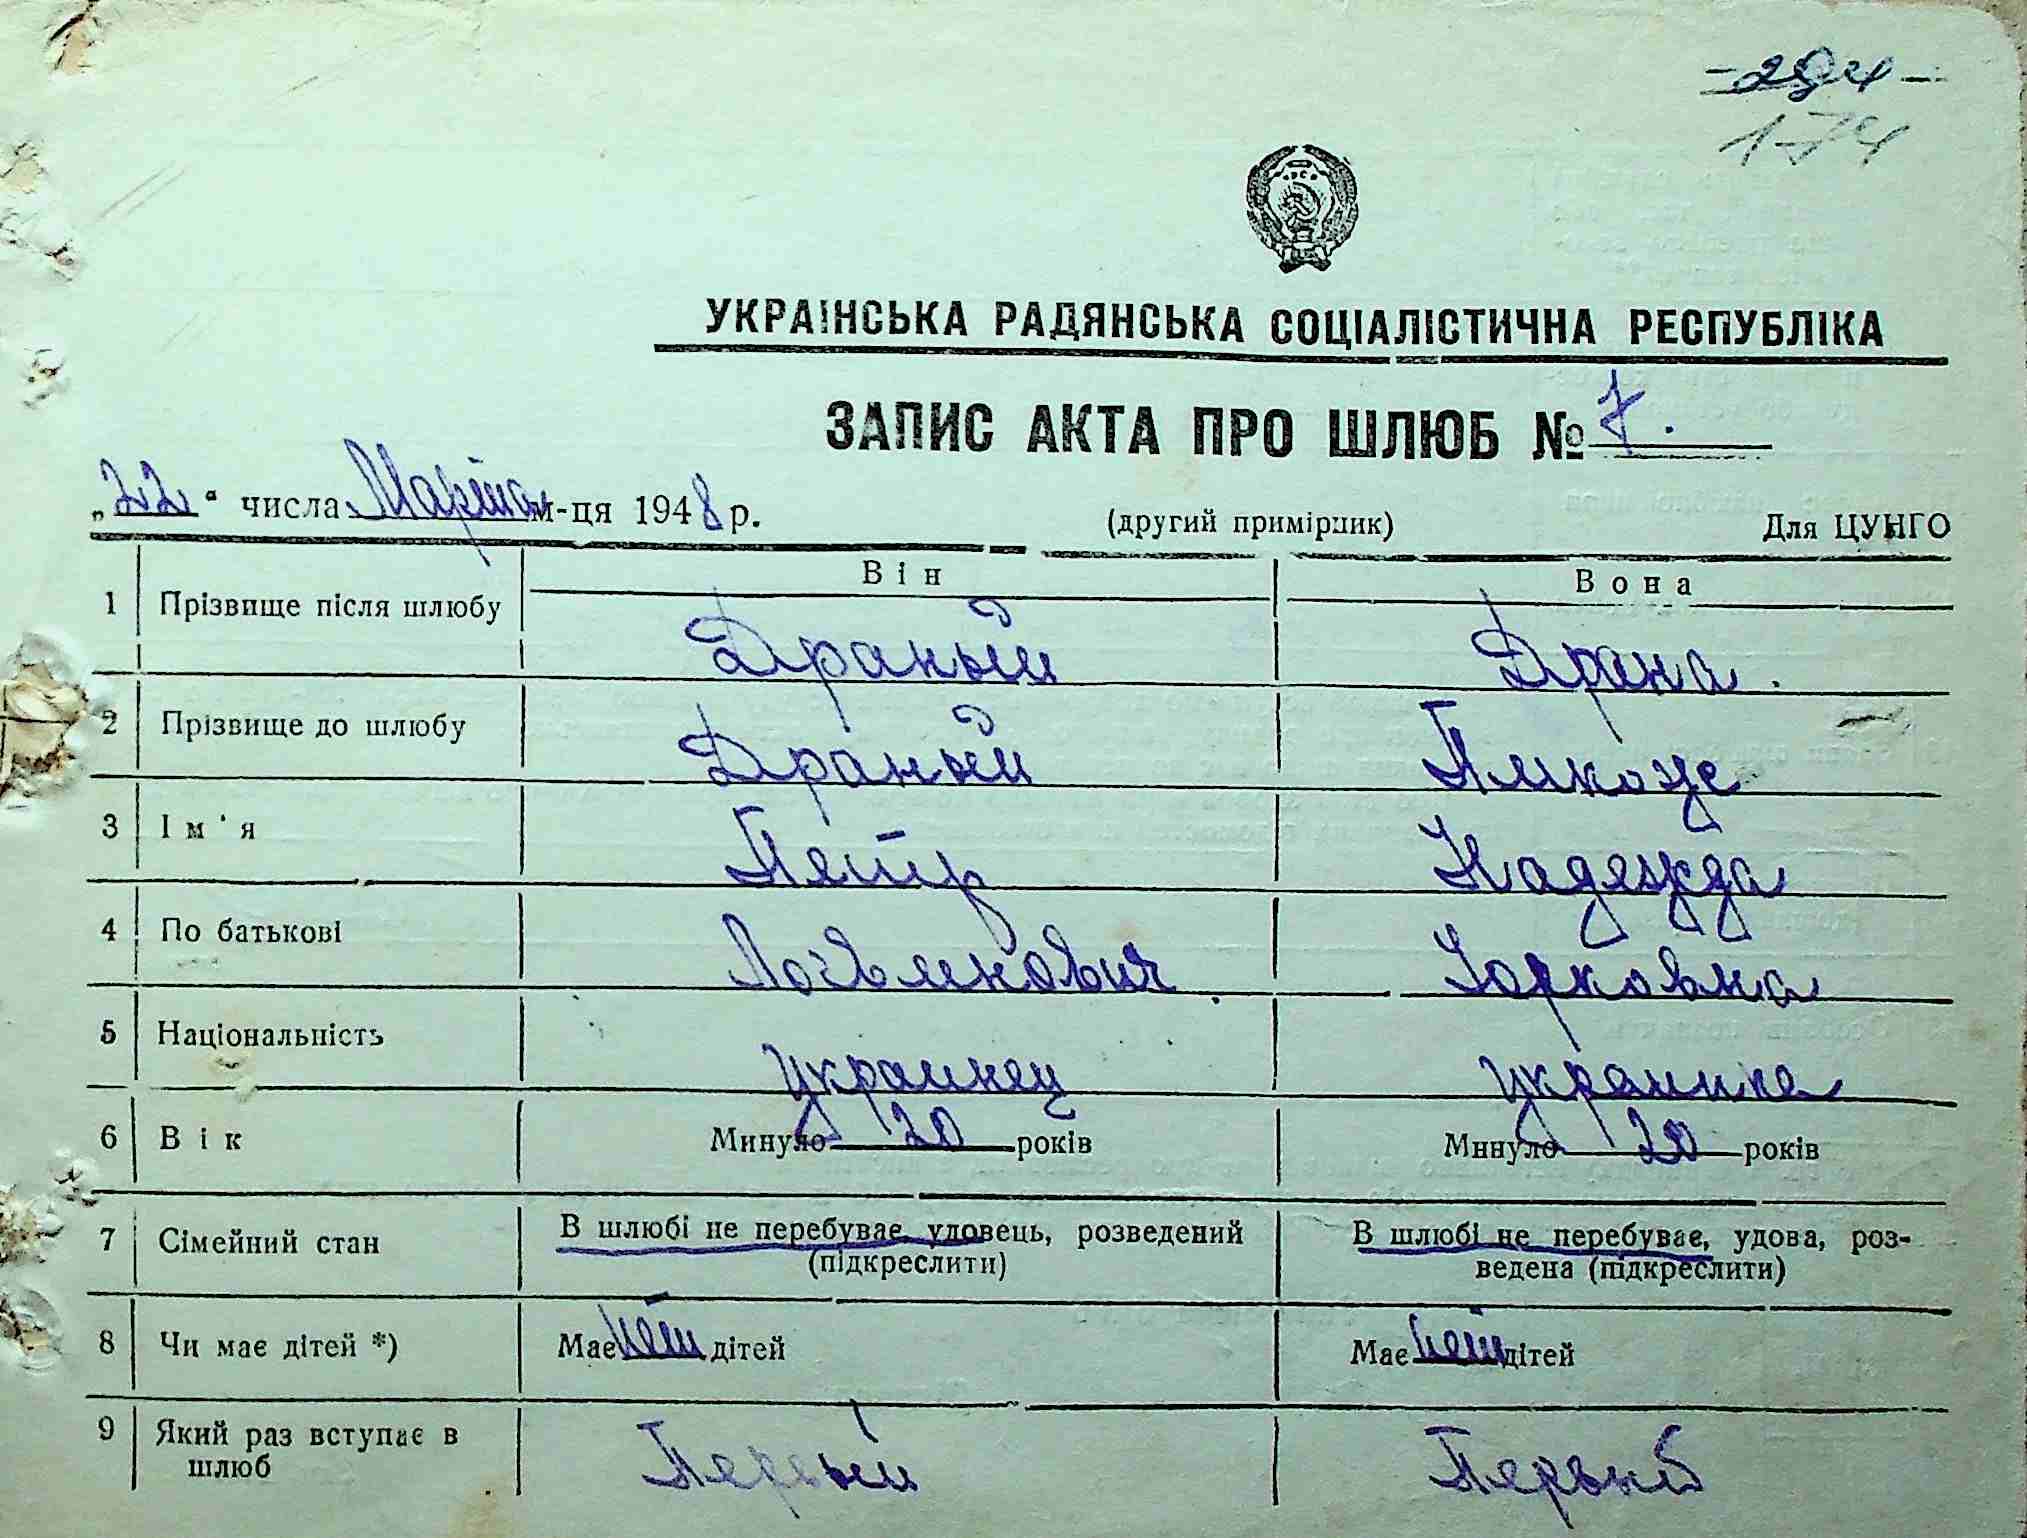 174
УКРАЇНСЬКА РАДЯНСЬКА СОЦІАЛІСТИЧНА РЕСПУБЛІКА
ЗАПИС АКТА ПРО ШЛЮБ № 7.
„22“ числа Марта м-ця 1948 р. (другий примірник) Для ЦУНГО
Він Вона
1 Прізвище після шлюбу Драный Драна.
2 Прізвище до шлюбу Драный
3 Ім'я Петр Надежда
4 По батькові Логвинович
5 Національність украинец украинка
6 Вік Минуло 20 років Минуло 20 років
7 Сімейний стан В шлюбі не перебуває, удовець, розведений (підкреслити) В шлюбі не перебуває, удова, роз-
ведена (підкреслити)
8 Чи має дітей *) Має нет дітей Має нет дітей
9 Який раз вступає в шлюб Первый Первый